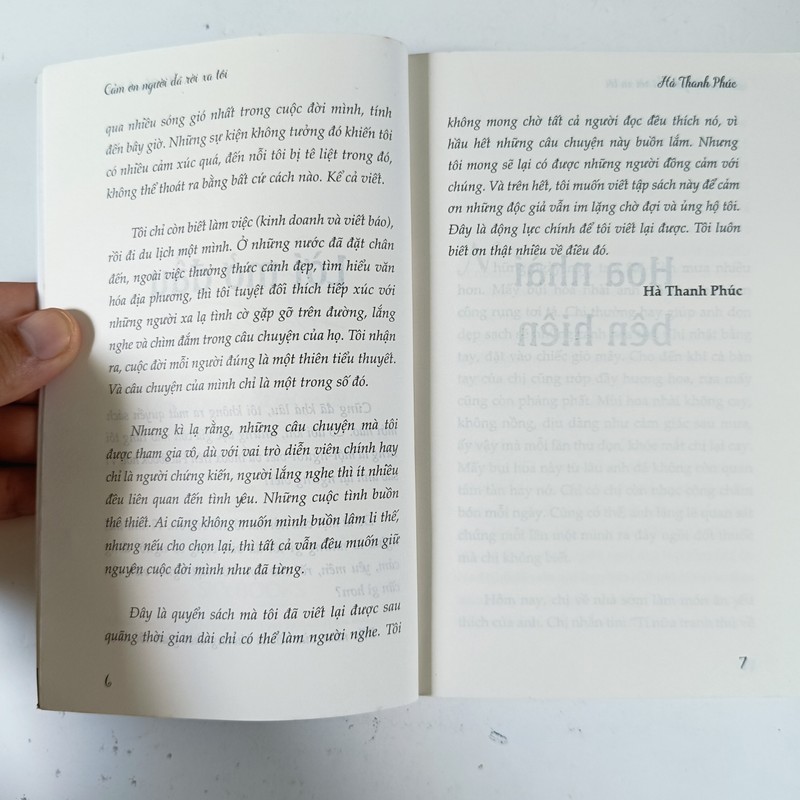 Cảm ơn người đã rời xa tôi
qua nhiều sóng gió nhất trong cuộc đời mình, tính
đến bây giờ. Những sự kiện không tưởng đó khiến tôi
có nhiều cảm xúc quá, đến nỗi tôi bị tê liệt trong đó,
không thể thoát ra bằng bất cứ cách nào. Kể cả viết.
Tôi chỉ còn biết làm việc (kinh doanh và viết báo),
rồi đi du lịch một mình. Ở những nước đã đặt chân
đến, ngoài việc thưởng thức cảnh đẹp, tìm hiểu văn
hóa địa phương, thì tôi tuyệt đối thích tiếp xúc với
những người xa lạ tình cờ gặp gỡ trên đường, lắng
nghe và chìm đắm trong câu chuyện của họ. Tôi nhận
ra, cuộc đời mỗi người đúng là một thiên tiểu thuyết.
Và câu chuyện của mình chỉ là một trong số đó.
Nhưng kì lạ rằng, những câu chuyện mà tôi
được tham gia vô, dù với vai trò diễn viên chính hay
chỉ là người chứng kiến, người lắng nghe thì ít nhiều
đều liên quan đến tình yêu. Những cuộc tình buồn
thê thiết. Ai cũng không muốn mình buồn lâm li thế,
nhưng nếu cho chọn lại, thì tất cả vẫn đều muốn giữ
nguyên cuộc đời mình như đã từng.
Đây là quyển sách mà tôi đã viết lại được sau
quãng thời gian dài chỉ có thể làm người nghe. Tôi
6
Hà Thanh Phúc
không mong chờ tất cả người đọc đều thích nó, vì
hầu hết những câu chuyện này buồn lắm. Nhưng
tôi mong sẽ lại có được những người đồng cảm với
chúng. Và trên hết, tôi muốn viết tập sách này để cảm
ơn những độc giả vẫn im lặng chờ đợi và ủng hộ tôi.
Đây là động lực chính để tôi viết lại được. Tôi luôn
biết ơn thật nhiều về điều đó.
Hà Thanh Phúc
7